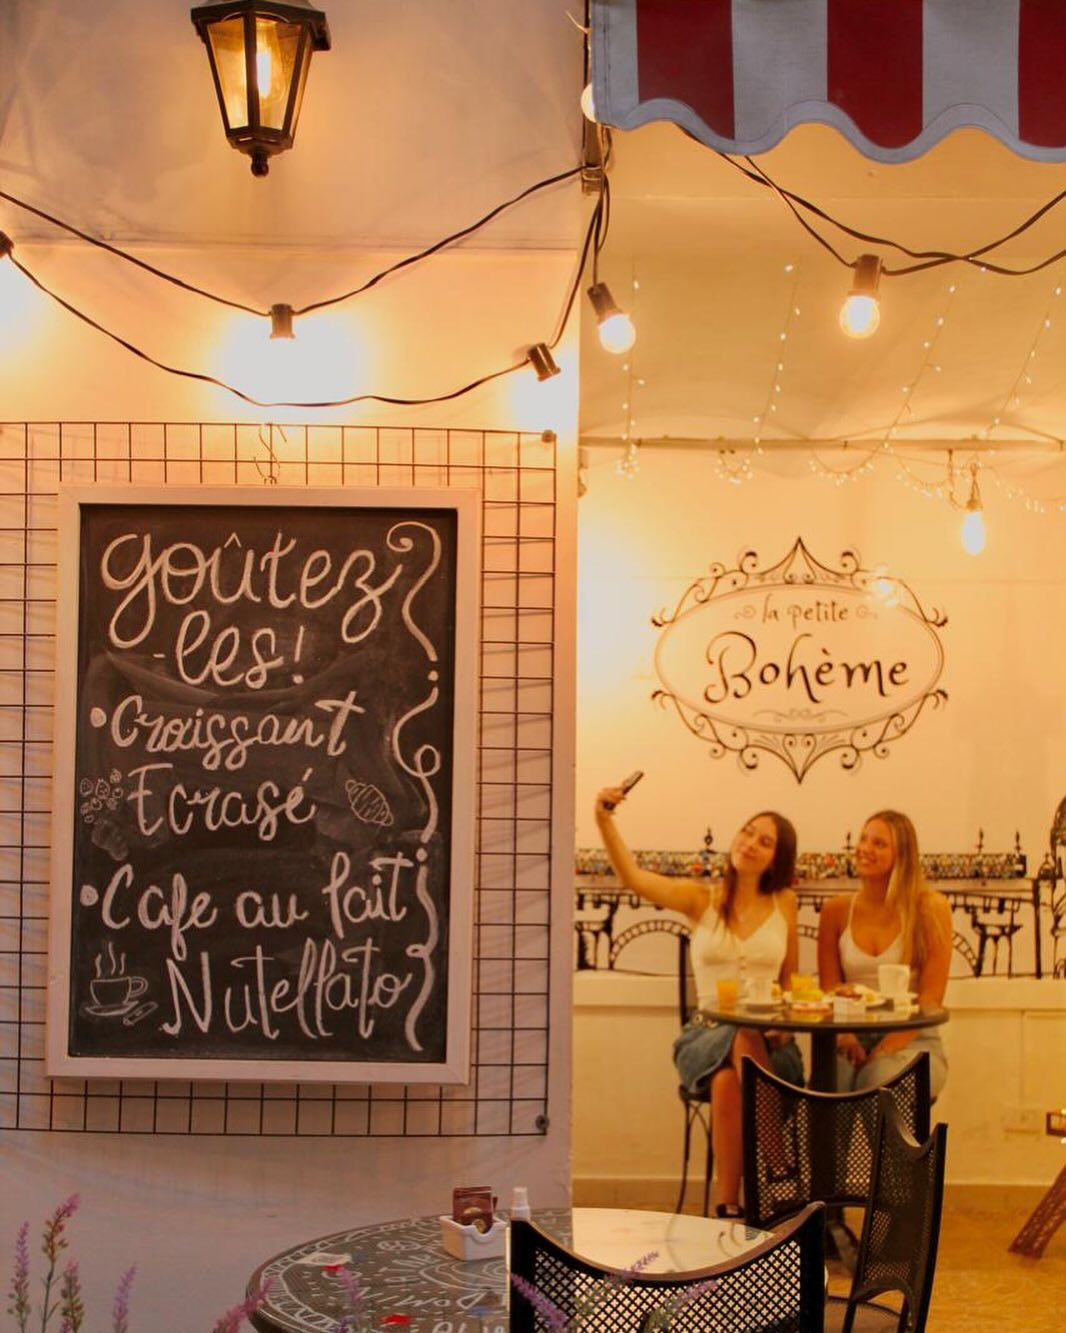 goûtez
-les!
•Croissant
Ecrasé
•Cafe au lait
Nutellato
la petite
Bohème